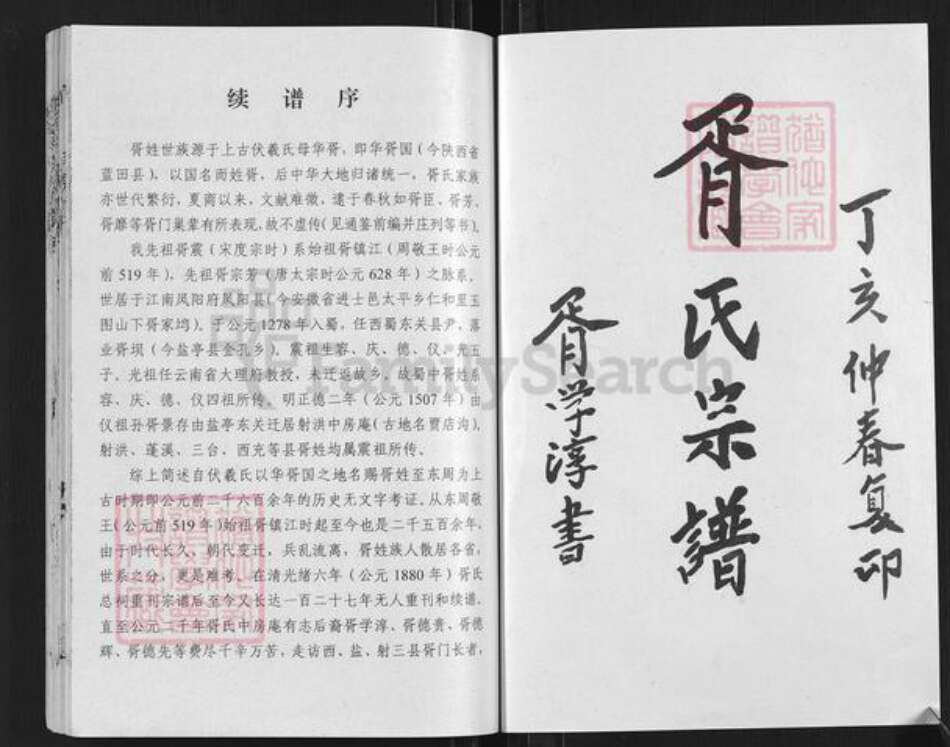 续 谱 序
胥姓世族源于上古伏羲氏母华胥，即华胥国（今陕西省
蓝田县），以国名而姓胥，后中华大地归诸统一，胥氏家族
亦世代繁衍，夏商以来，文献难徵，逮于春秋如胥臣、胥芳、
胥靡等胥门巢辈有所表现，故不虚传（见通鉴前编并庄列等书）。
我先祖胥震（宋度宗时）系始祖胥镇江（周敬王时公元
前519年），先祖胥宗芳（唐太宗时公元628年）之脉系，
世居于江南凤阳府凤阳县（今安徽省进士邑太平乡仁和里玉
图山下胥家塆）。于公元1278年入蜀，任西蜀东关县尹，落
业胥坝（今盐亭县金孔乡）。震祖生容、庆、德、仪、光五
子。光祖任云南省大理府教授，未迁返故乡，故蜀中胥姓系
容、庆、德、仪四祖所传。明正德二年（公元1507年）由
仪祖孙胥景存由盐亭东关迁居射洪中房庵（古地名贾店沟）。
射洪、蓬溪、三台、西充等县胥姓均属震祖所传。
综上简述自伏羲氏以华胥国之地名赐胥姓至东周为上
古时期即公元前二千六百余年的历史无文字考证。从东周敬
王（公元前519年）始祖胥镇江时起至今也是二千五百余年，
由于时代长久、朝代变迁，兵乱流离，胥姓族人散居各省，
世系之分，更是难考。在清光绪六年（公元1880年）胥氏
总祠重刊宗谱后至今又长达一百二十七年无人重刊和续谱。
直至公元二千年胥氏中房庵有志后裔胥学淳、胥德贵、胥德
辉、胥德先等费尽千辛万苦，走访西、盐、射三县胥门长者，
丁亥仲春复印
胥氏宗譜
胥学淳書
FamilySearch